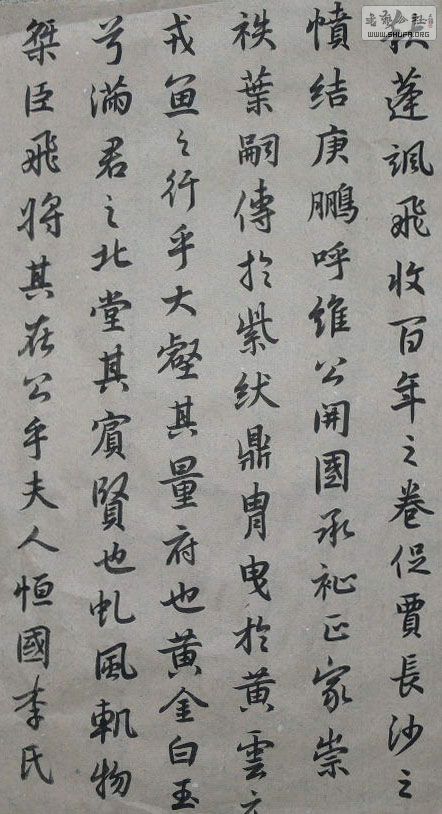 蓬颯飛收百年之卷促賈長沙之
憤結庚鵬呼維公開國承祉正家崇
袟葉嗣傳於紫紱鼎胄曳於黃雲元
戎魚々行乎大壑其量府也黃金白玉
兮滿君之北堂其賓賢也虬風軌物
桀臣飛將其在公乎夫人恒國李氏
WWW.SHUFA.ORG